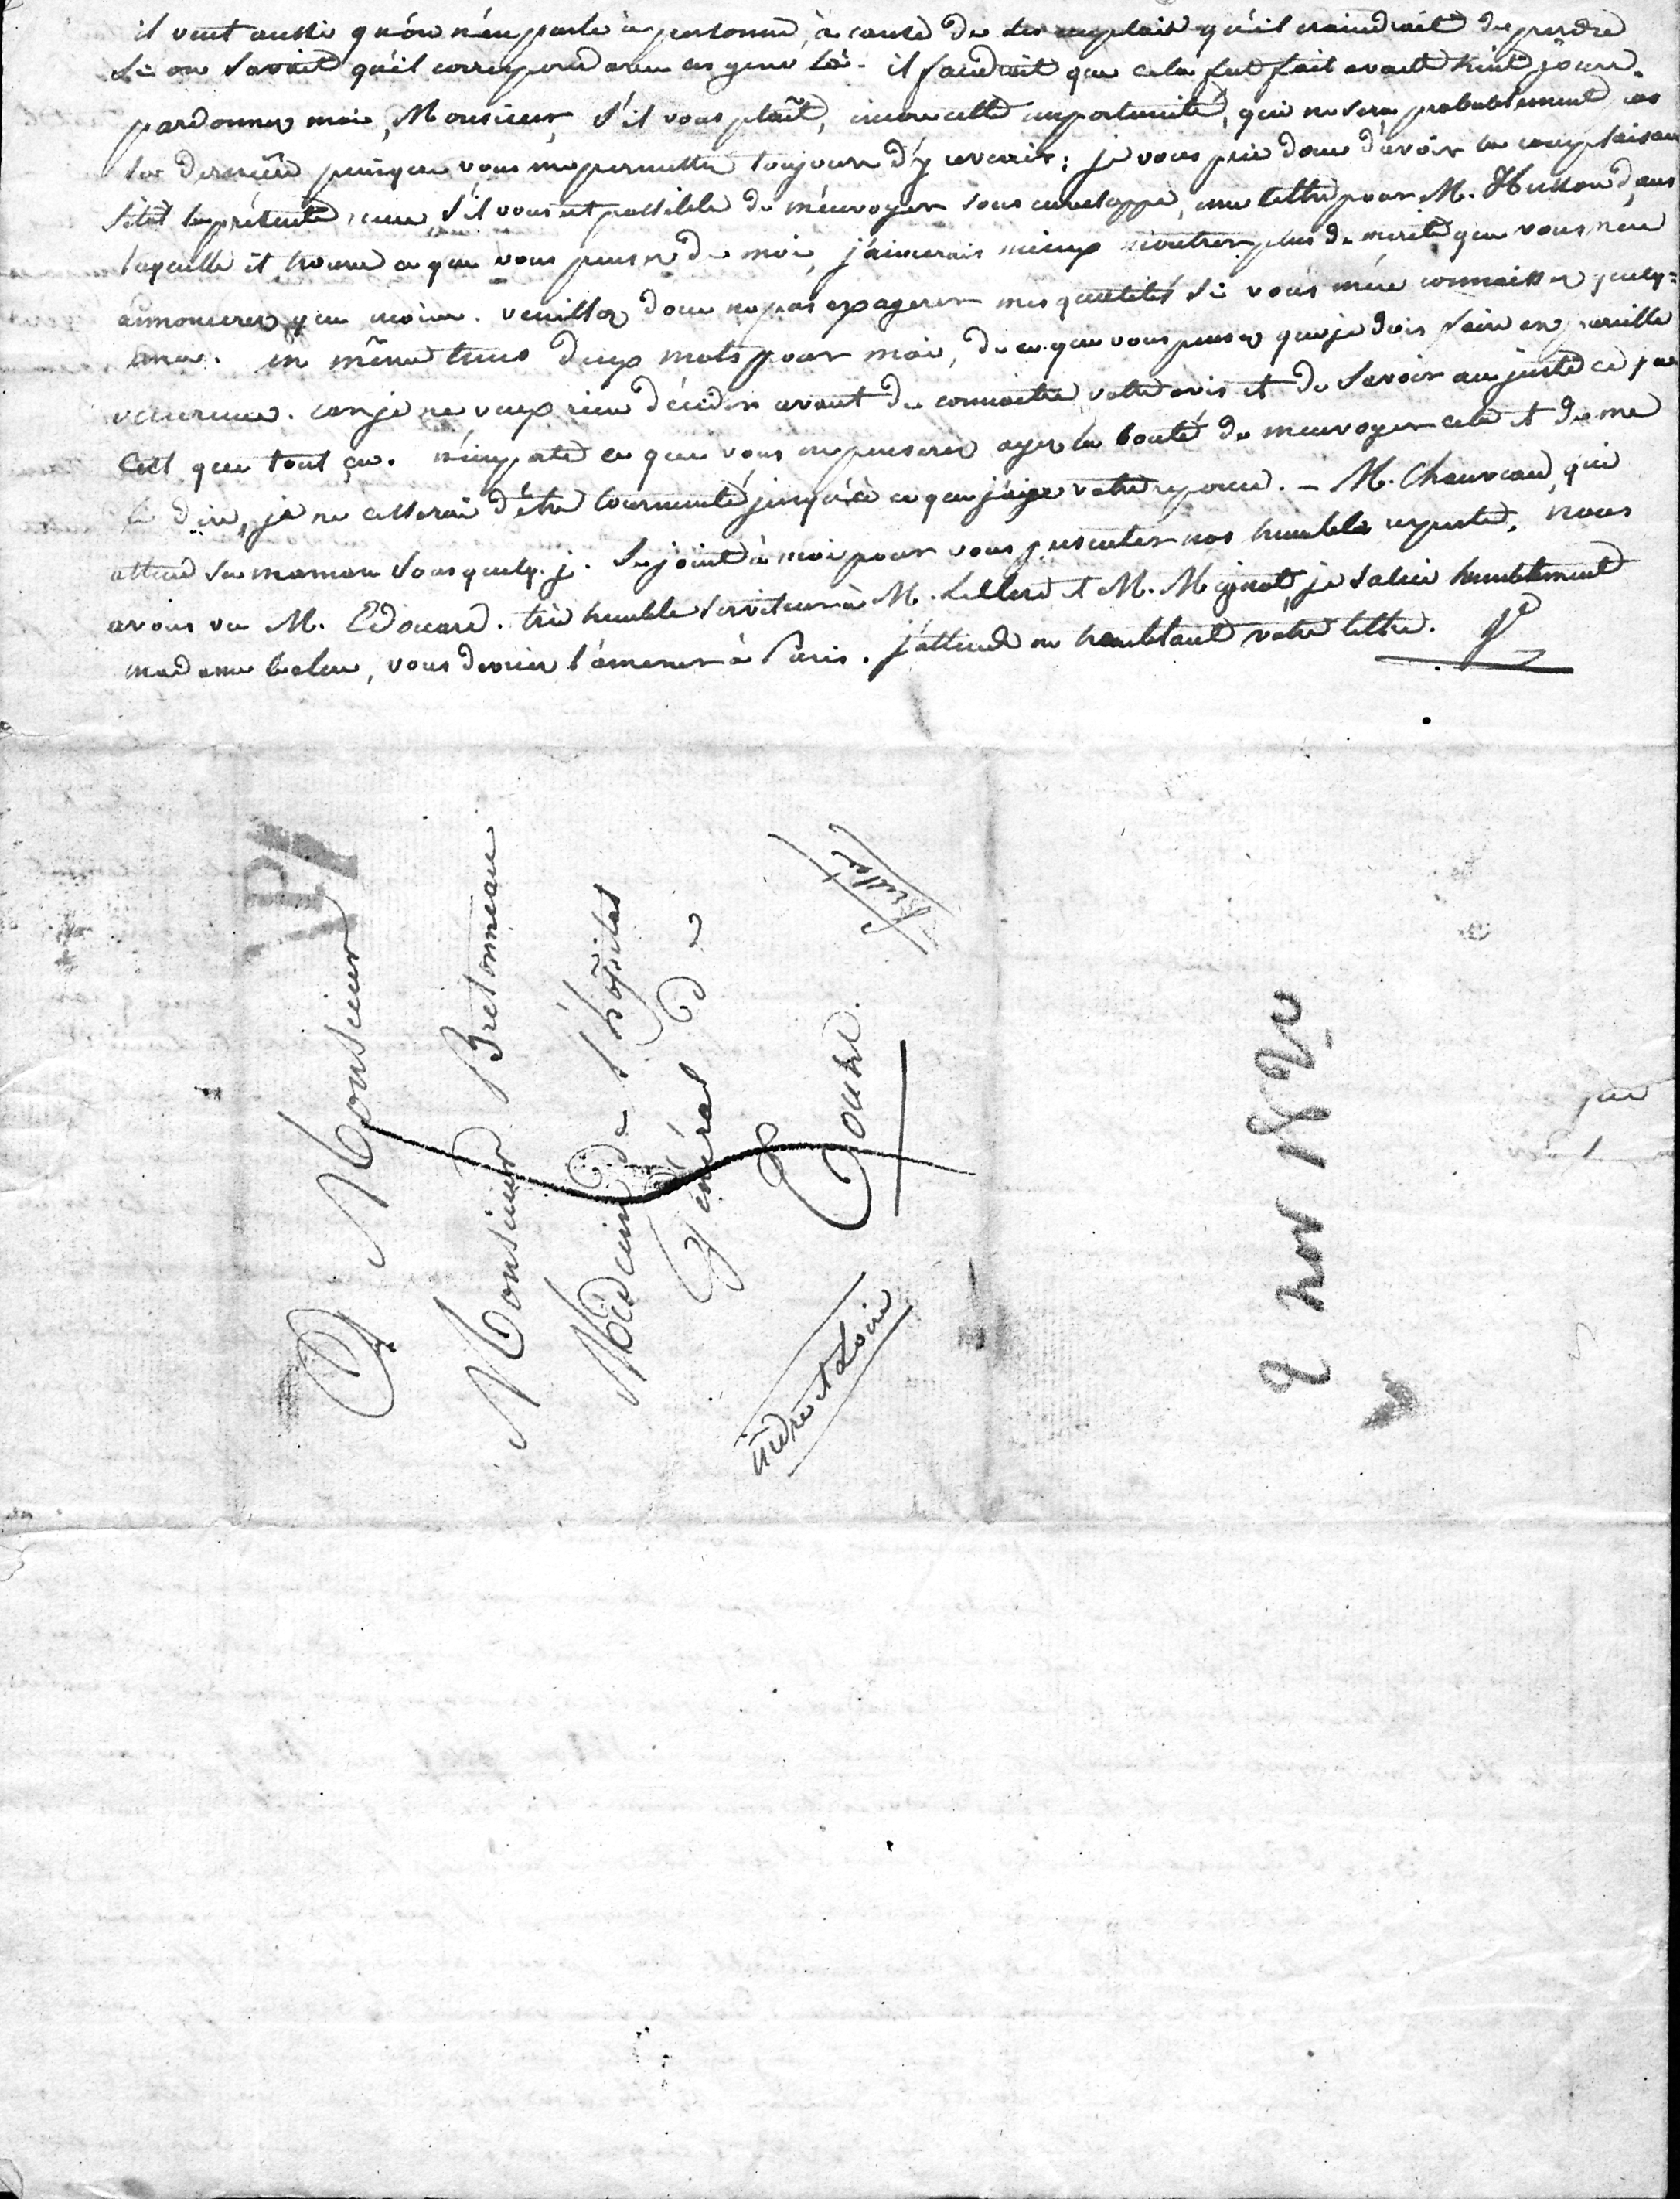 il veut aussi qu'on n'en parle à personne, à cause de ses emplois qu'il craindrait de perdre
si on savait qu'il correspond avec ces gens là. il faudrait que cela fut fait avant huit jours.
pardonnez moi, Monsieur, s'il vous plaît, encore cette importunité, qui ne sera probablement pas
la dernière puisque vous me permettez toujours d'y revenir; je vous prie donc d'avoir la complaisance
sitôt la présente reçue, s'il vous est possible de m'envoyer sous enveloppe, une lettre pour M. Husson dans
laquelle il trouve ce que vous pensez de moi, j'aimerais mieux montrer plus de mérite que vous n'en
annoncerez que moins. veuillez donc ne pas exagerer mes qualités si vous m'en connaissez quelq=
unes. en même tems deux mots pour moi, de ce que vous pensez que je dois faire en pareille
car je ne veux rien décider avant de connaitre votre avis et de savoir au juste ce que
c'est que tout ça. n'importe ce que vous en penserez ayez la bonté de m'envoyer cela et de me
le dire, je ne cesserai d'être tourmenté jusqu'à ce que j'aye votre reponse. – M. Chauveau, qui
attend sa maman sous quelq. j. se joint à moi pour vous presenter nos humbles respects, nous
avons vu M. Edouard. très humble serviteur à M. Leclerc et M. Mignot, je salue humblement
madame vous devriez l'amener à Paris. j'attends en tremblant votre lettre.
P
A Monsieur
Monsieur Bretonneau
Médecin de l'hôpital
Général &
Tours.
indre et Loire